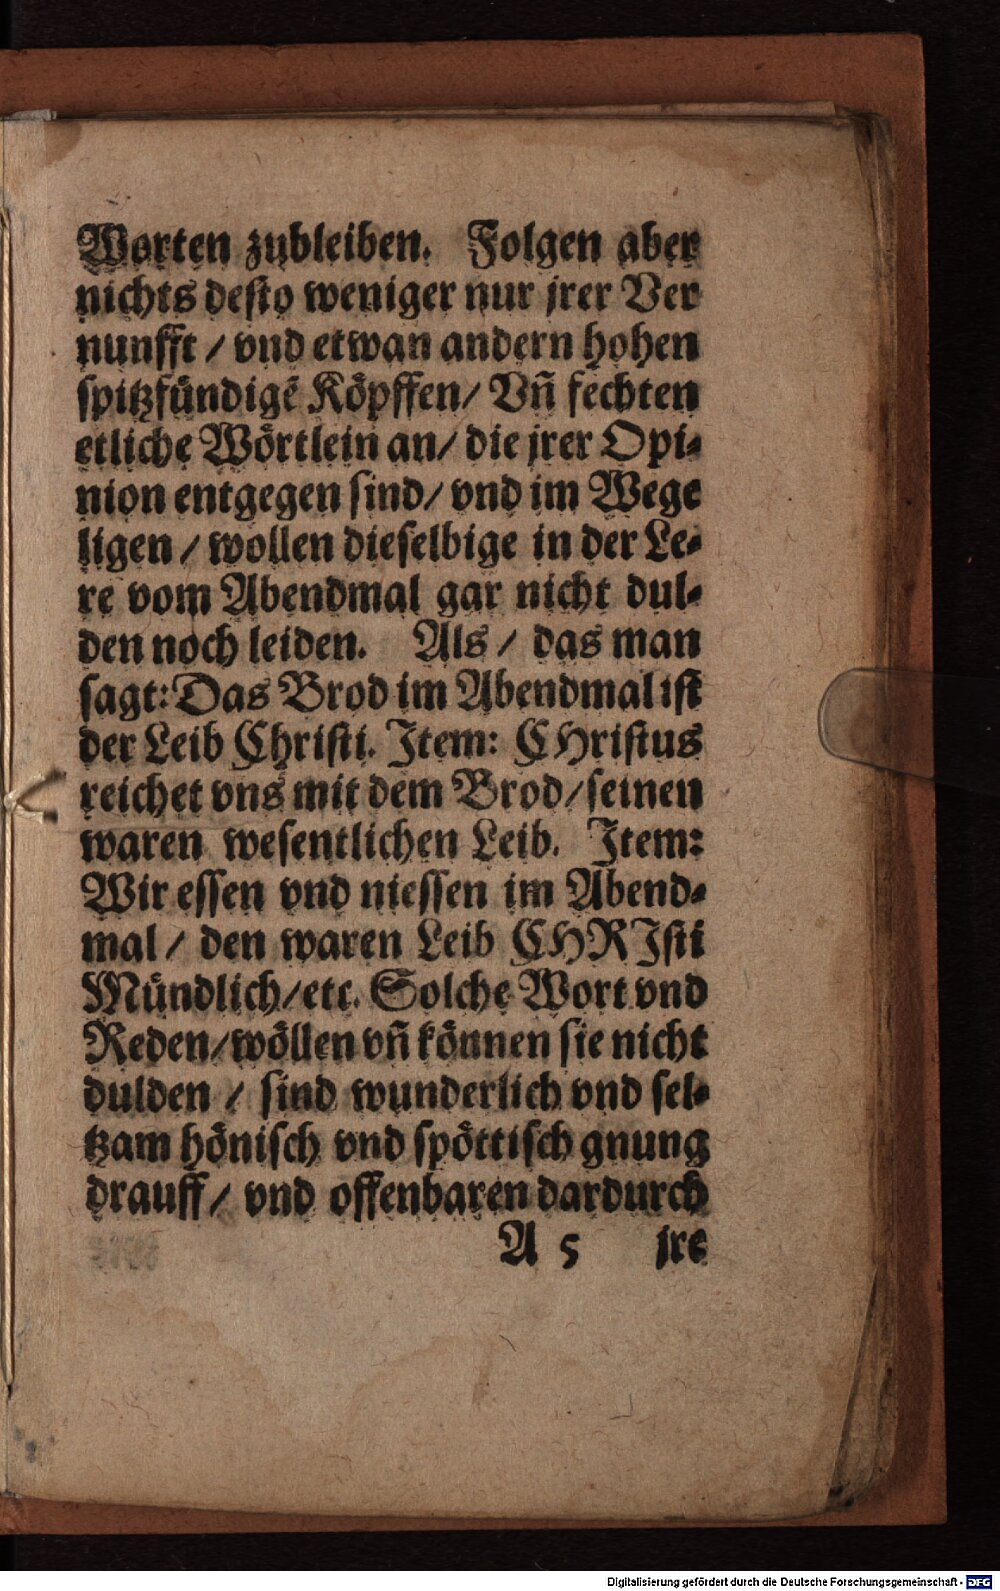 Worten zubleiben. Folgen aber
nichts desto weniger nur jrer Ver
nunfft / vnd etwan andern hohen
spitzfündigẽ Köpffen / Vñ fechten
etliche Wörtlein an / die jrer Opi-
nion entgegen sind / vnd im Wege
ligen / wollen dieselbige in der Le-
re vom Abendmal gar nicht dul-
den noch leiden. Als / das man
sagt: Das Brod im Abendmal ist
der Leib Christi. Item: CHristus
reichet vns mit dem Brod / seinen
waren wesentlichen Leib. Item:
Wir essen vnd niessen im Abend-
mal / den waren Leib CHRIsti
Mündlich / etc. Solche Wort vnd
Reden / wöllen vñ können sie nicht
dulden / sind wunderlich vnd sel-
tzam hönisch vnd spöttisch gnung
drauff / vnd offenbaren dardurch
A 5 jre
Digitalisierung gefördert durch die Deutsche Forschungsgemeinschaft - DFG